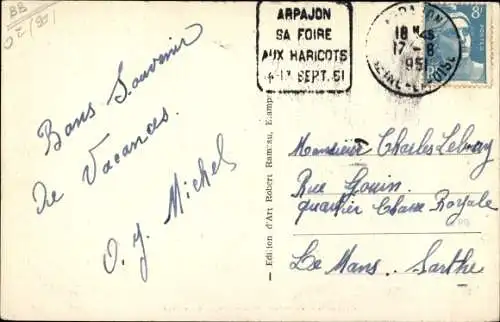 BB
ARPAJON
SA FOIRE
AUX HARICOTS
SEPT. 51
ARPAJON
18H45
17-8
1951
SEINE-ET-OISE
POSTES
Bons Souvenir
de Vacances.
O. J. Michel
Edition d'Art Robert Rameau, Etampes
Monsieur Charles Lebray
Rue Gouin
quartier Chasse Royale
Le Mans. Sarthe